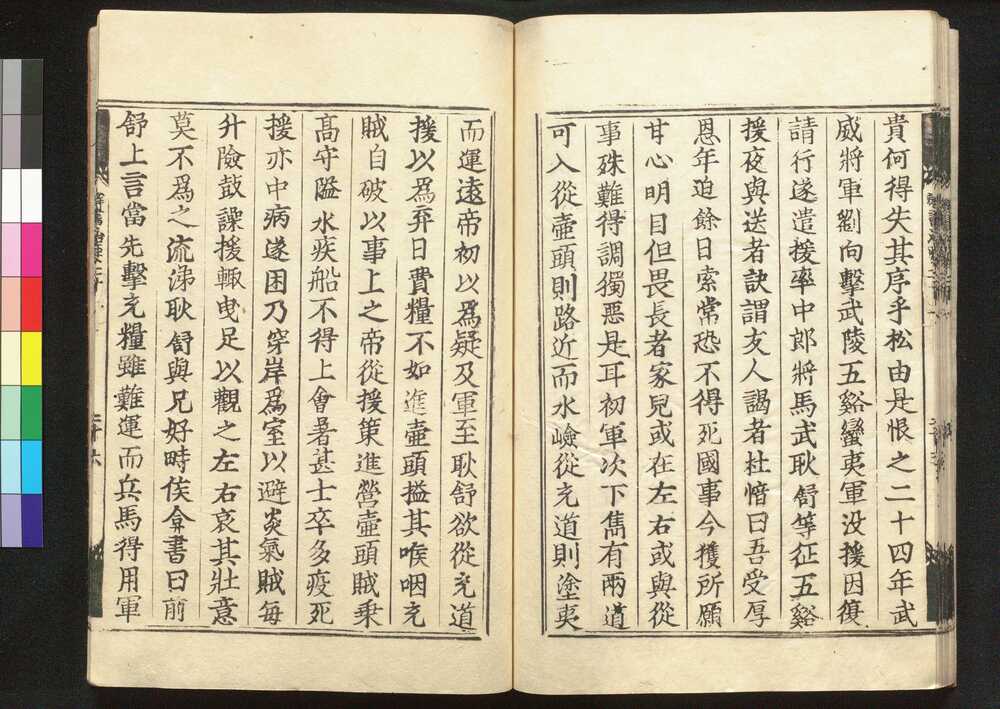 貴何得失其序乎松由是恨之二十四年武
威將軍劉向擊武陵五谿蠻夷軍没援因復
請行遂遣援率中郎將馬武耿舒等征五谿
援夜與送者訣謂友人謁者杜愔曰吾受厚
恩年迫餘日索常恐不得死國事今獲所願
甘心明目但畏長者家兒或在左右或與從
事殊難得調獨惡是耳初軍次下雋有兩道
可入從壺頭則路近而水嶮從充道則塗夷
而運遠帝初以爲疑及軍至耿舒欲從充道
援以爲弃日費糧不如進壺頭搤其喉咽充
賊自破以事上之帝從援策進營壺頭賊乗
高守隘水疾船不得上會暑甚士卒多疫死
援亦中病遂困乃穿岸爲室以避炎氣賊毎
升險鼓譟援輙曳足以觀之左右哀其壯意
莫不爲之流涕耿舒與兄好畤侯弇書曰前
舒上言當先擊充糧雖難運而兵馬得用軍